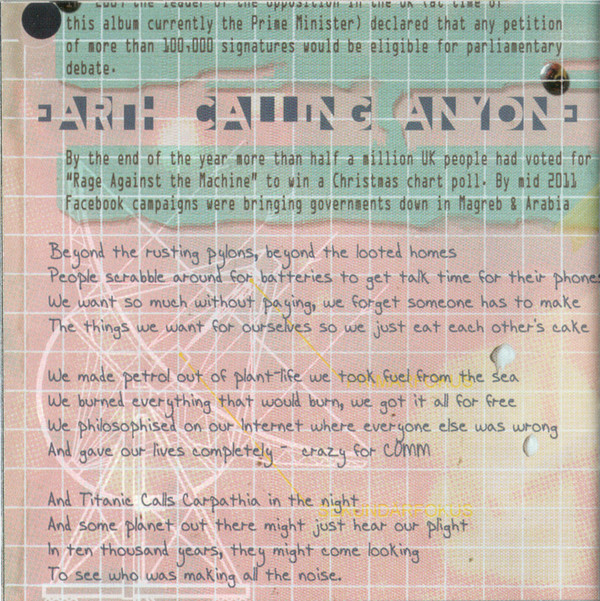 the leader of the opposition in the UK (at time of
this album currently the Prime Minister) declared that any petition
of more than 100,000 signatures would be eligible for parliamentary
debate.
EARTH CALLING ANYONE
By the end of the year more than half a million UK people had voted for
"Rage Against the Machine" to win a Christmas chart poll. By mid 2011
Facebook campaigns were bringing governments down in Magreb & Arabia
Beyond the rusting pylons, beyond the looted homes
People scrabble around for batteries to get talk time for their phones
We want so much without paying, we forget someone has to make
The things we want for ourselves so we just eat each other's cake
We made petrol out of plant-life we took fuel from the sea
We burned everything that would burn, we got it all for free
We philosophised on our Internet where everyone else was wrong
And gave our lives completely - crazy for COMM
And Titanic Calls Carpathia in the night
And some planet out there might just hear our plight
In ten thousand years, they might come looking
To see who was making all the noise.